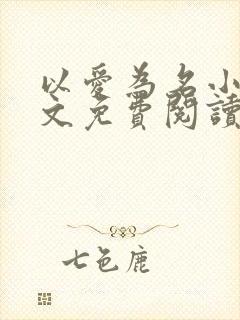 以爱为名小
文免費閱讀
七色鹿